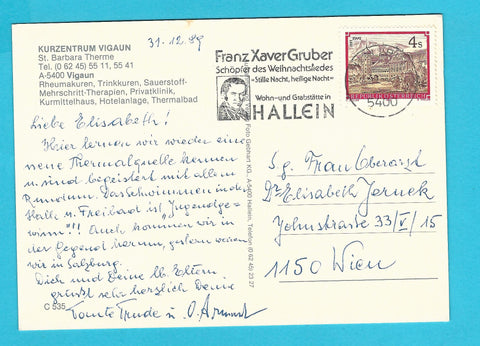 KURZENTRUM VIGAUN
St. Barbara Therme
Tel. (0 62 45) 55 11, 55 41
A-5400 Vigaun
Rheumakuren, Trinkkuren, Sauerstoff-
Mehrschritt-Therapien, Privatklinik,
Kurmittelhaus, Hotelanlage, Thermalbad
31.12.89
Liebe Elisabeth!
Hier lernen wir wieder eine
neue Thermalquelle kennen
u. sind begeistert mit allem
Rundum. Das Schwimmen in der
Halle u. Freibad ist "Jugendge-
winn"!! Auch kommen wir in
der Gegend herum, gestern waren
wir in Salzburg.
Dich und Deine lb. Eltern
grüßt sehr herzlich Deine
Tante Trude u. O.
C 535
Foto Gebhart KG., A-5400 Hallein, Telefon (0 62 45) 23 27
Franz Xaver Gruber
Schöpfer des Weihnachtsliedes
»Stille Nacht, heilige Nacht«
Wohn- und Grabstätte in
HALLEIN
5400
4 S
REPUBLIK ÖSTERREICH
Sg. Frau Oberarzt
Dr Elisabeth
33/V/15
1150 Wien